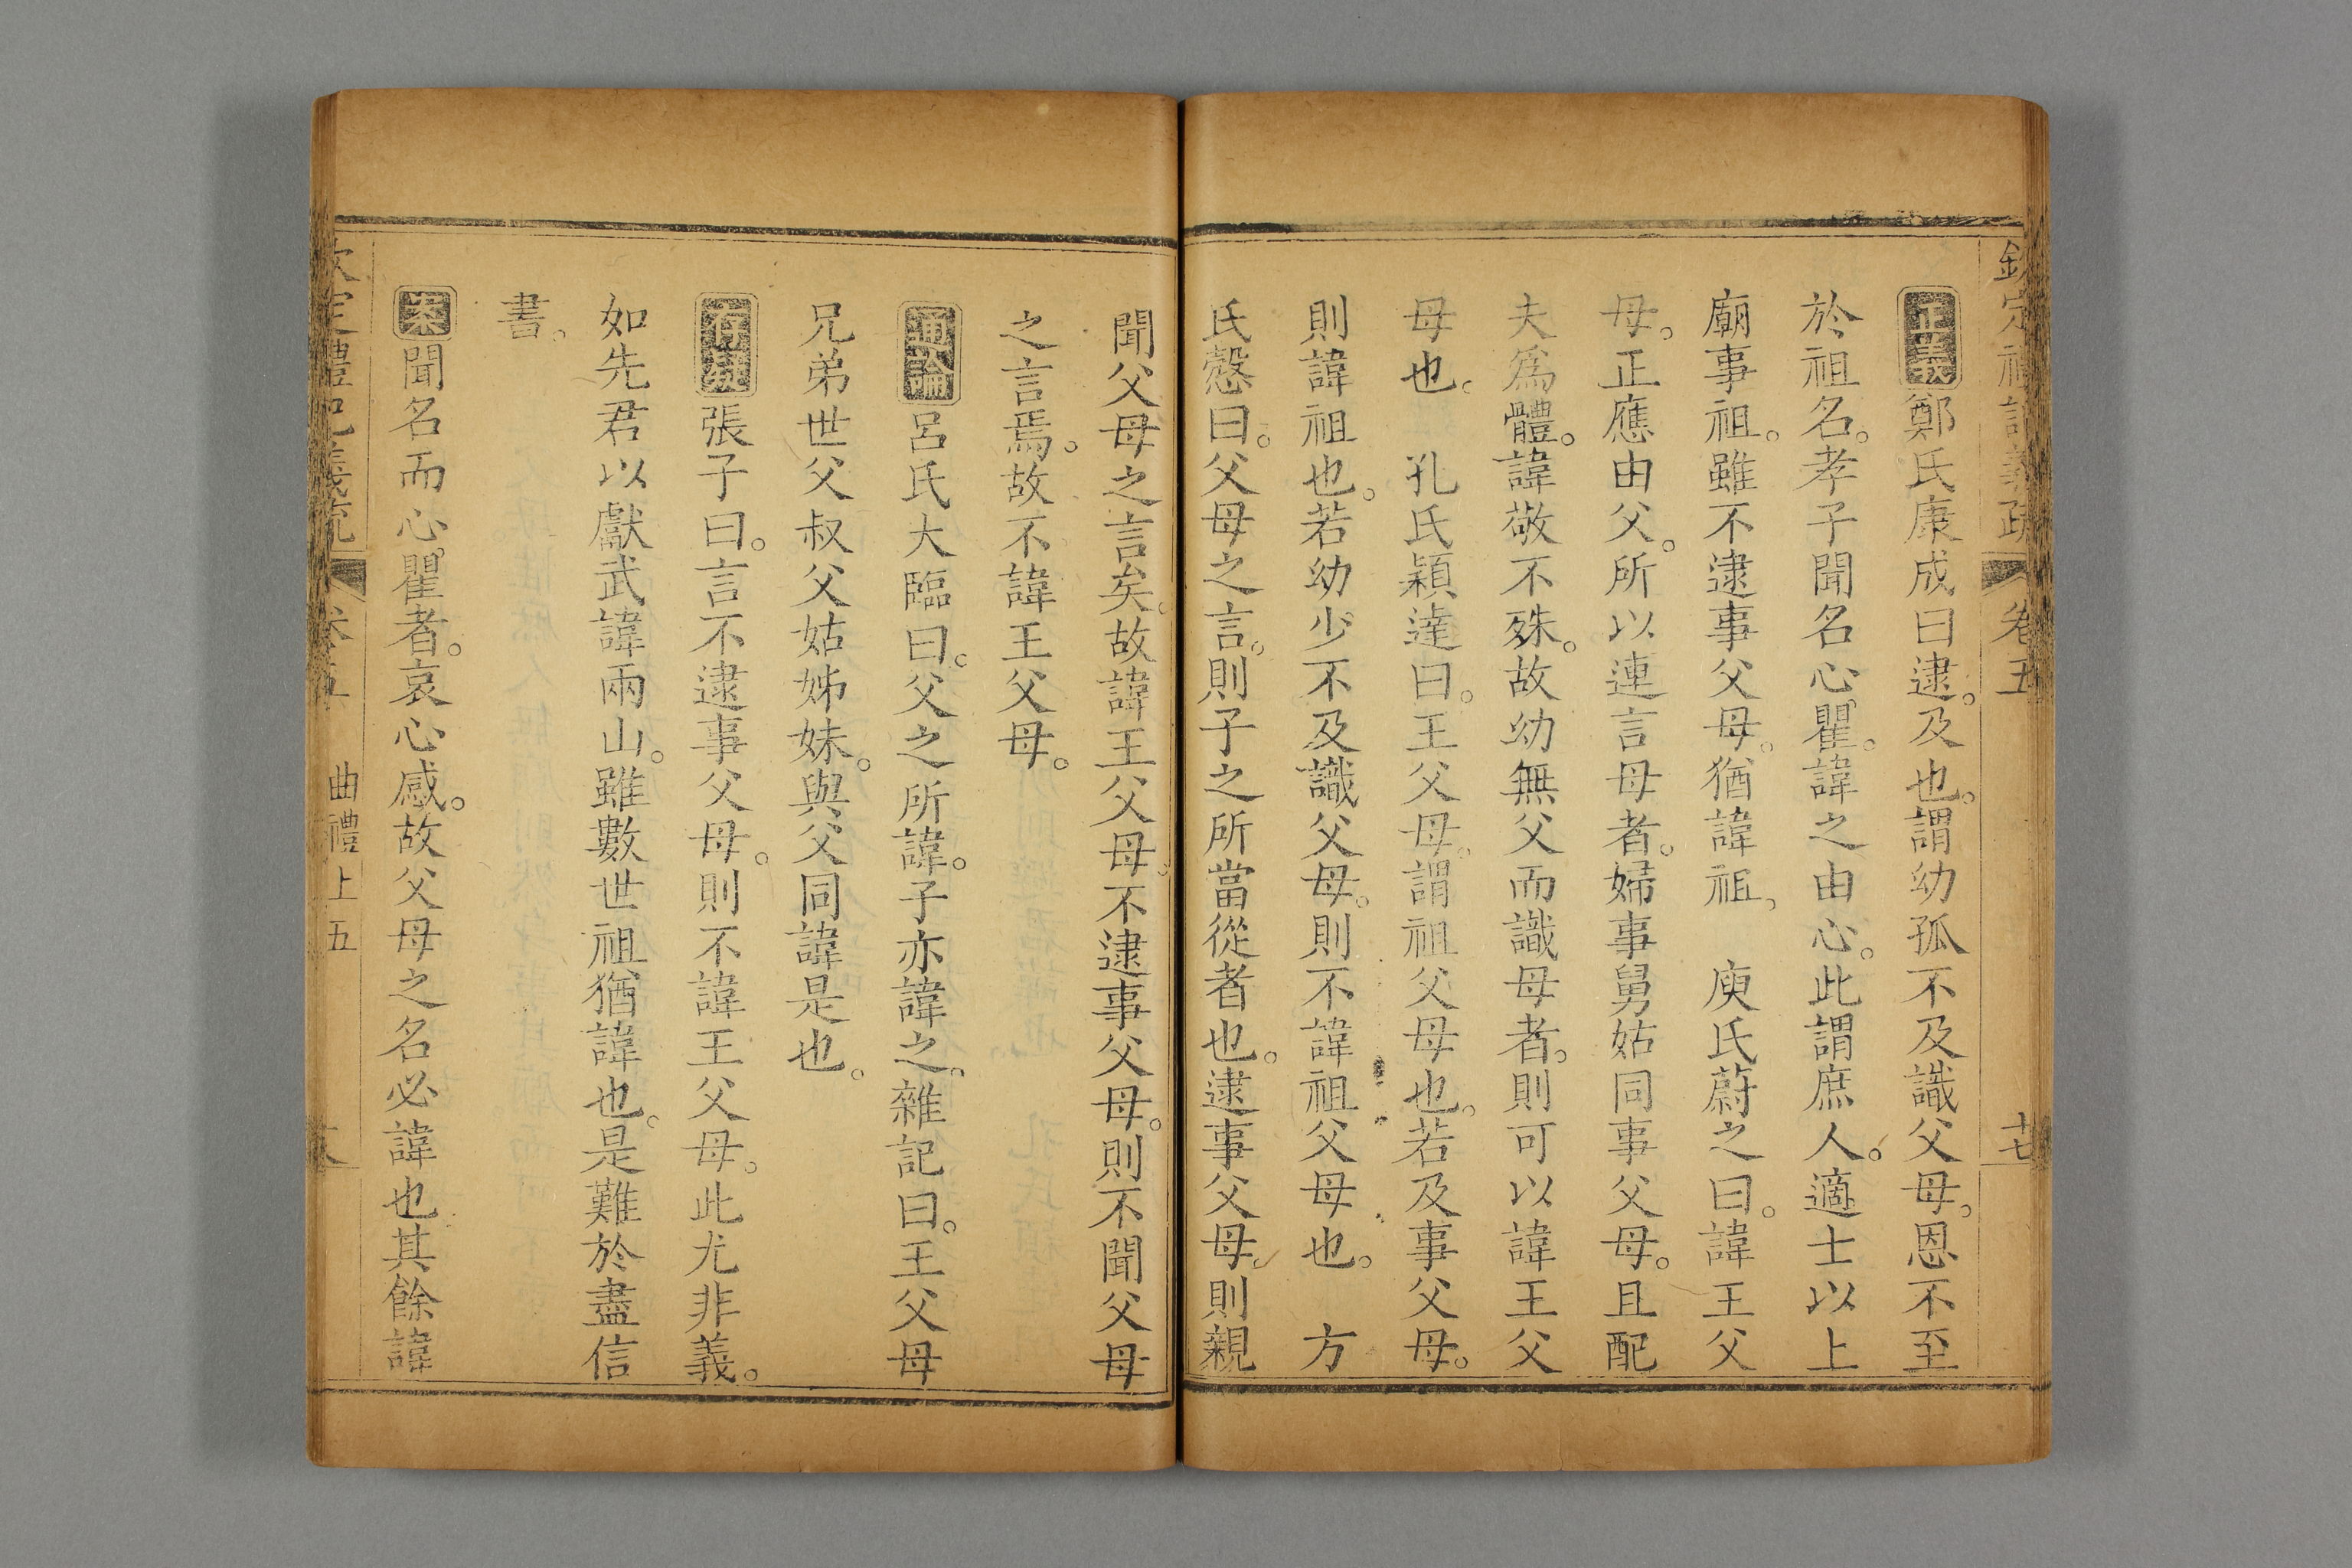 欽定禮記義疏 卷五 十七
正義鄭氏康成曰逮。及也。謂幼孤不及識父母。恩不至
於祖名。孝子聞名心瞿。諱之由心。此謂庶人。適士以上
廟事祖。雖不逮事父母。猶諱祖。 庾氏蔚之曰。諱王父
母。正應由父。所以連言母者。婦事舅姑同事父母。且配
夫爲體。諱敬不殊。故幼無父而識母者。則可以諱王父
母也。 孔氏穎達曰。王父母。謂祖父母也。若及事父母。
則諱祖也。若幼少不及識父母。則不諱祖父母也。 方
氏慤曰。父母之言。則子之所當從者也。逮事父母。則親
聞父母之言矣。故諱王父母。不逮事父母。則不聞父母
之言焉。故不諱王父母。
通論呂氏大臨曰。父之所諱。子亦諱之。雜記曰。王父母
兄弟世父叔父姑姊妹。與父同諱是也。
存疑張子曰。言不逮事父母。則不諱王父母。此尤非義。
如先君以獻武諱兩山。雖數世祖猶諱也。是難於盡信
書。
案聞名而心瞿者。哀心感。故父母之名必諱也其餘諱
欽定禮記義疏 卷五 曲禮上五